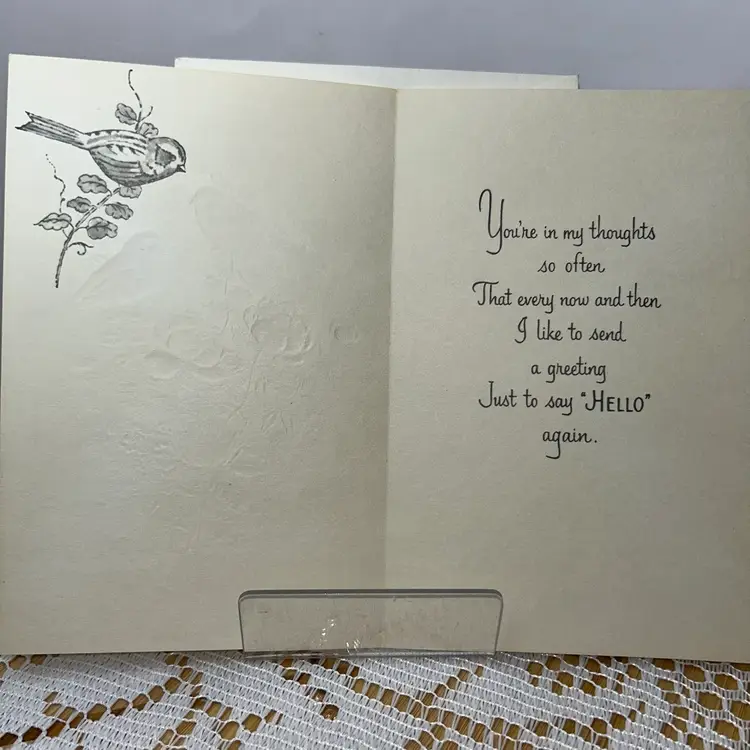 You're in my thoughts
so often
That every now and then
I like to send
a greeting
Just to say "HELLO"
again.